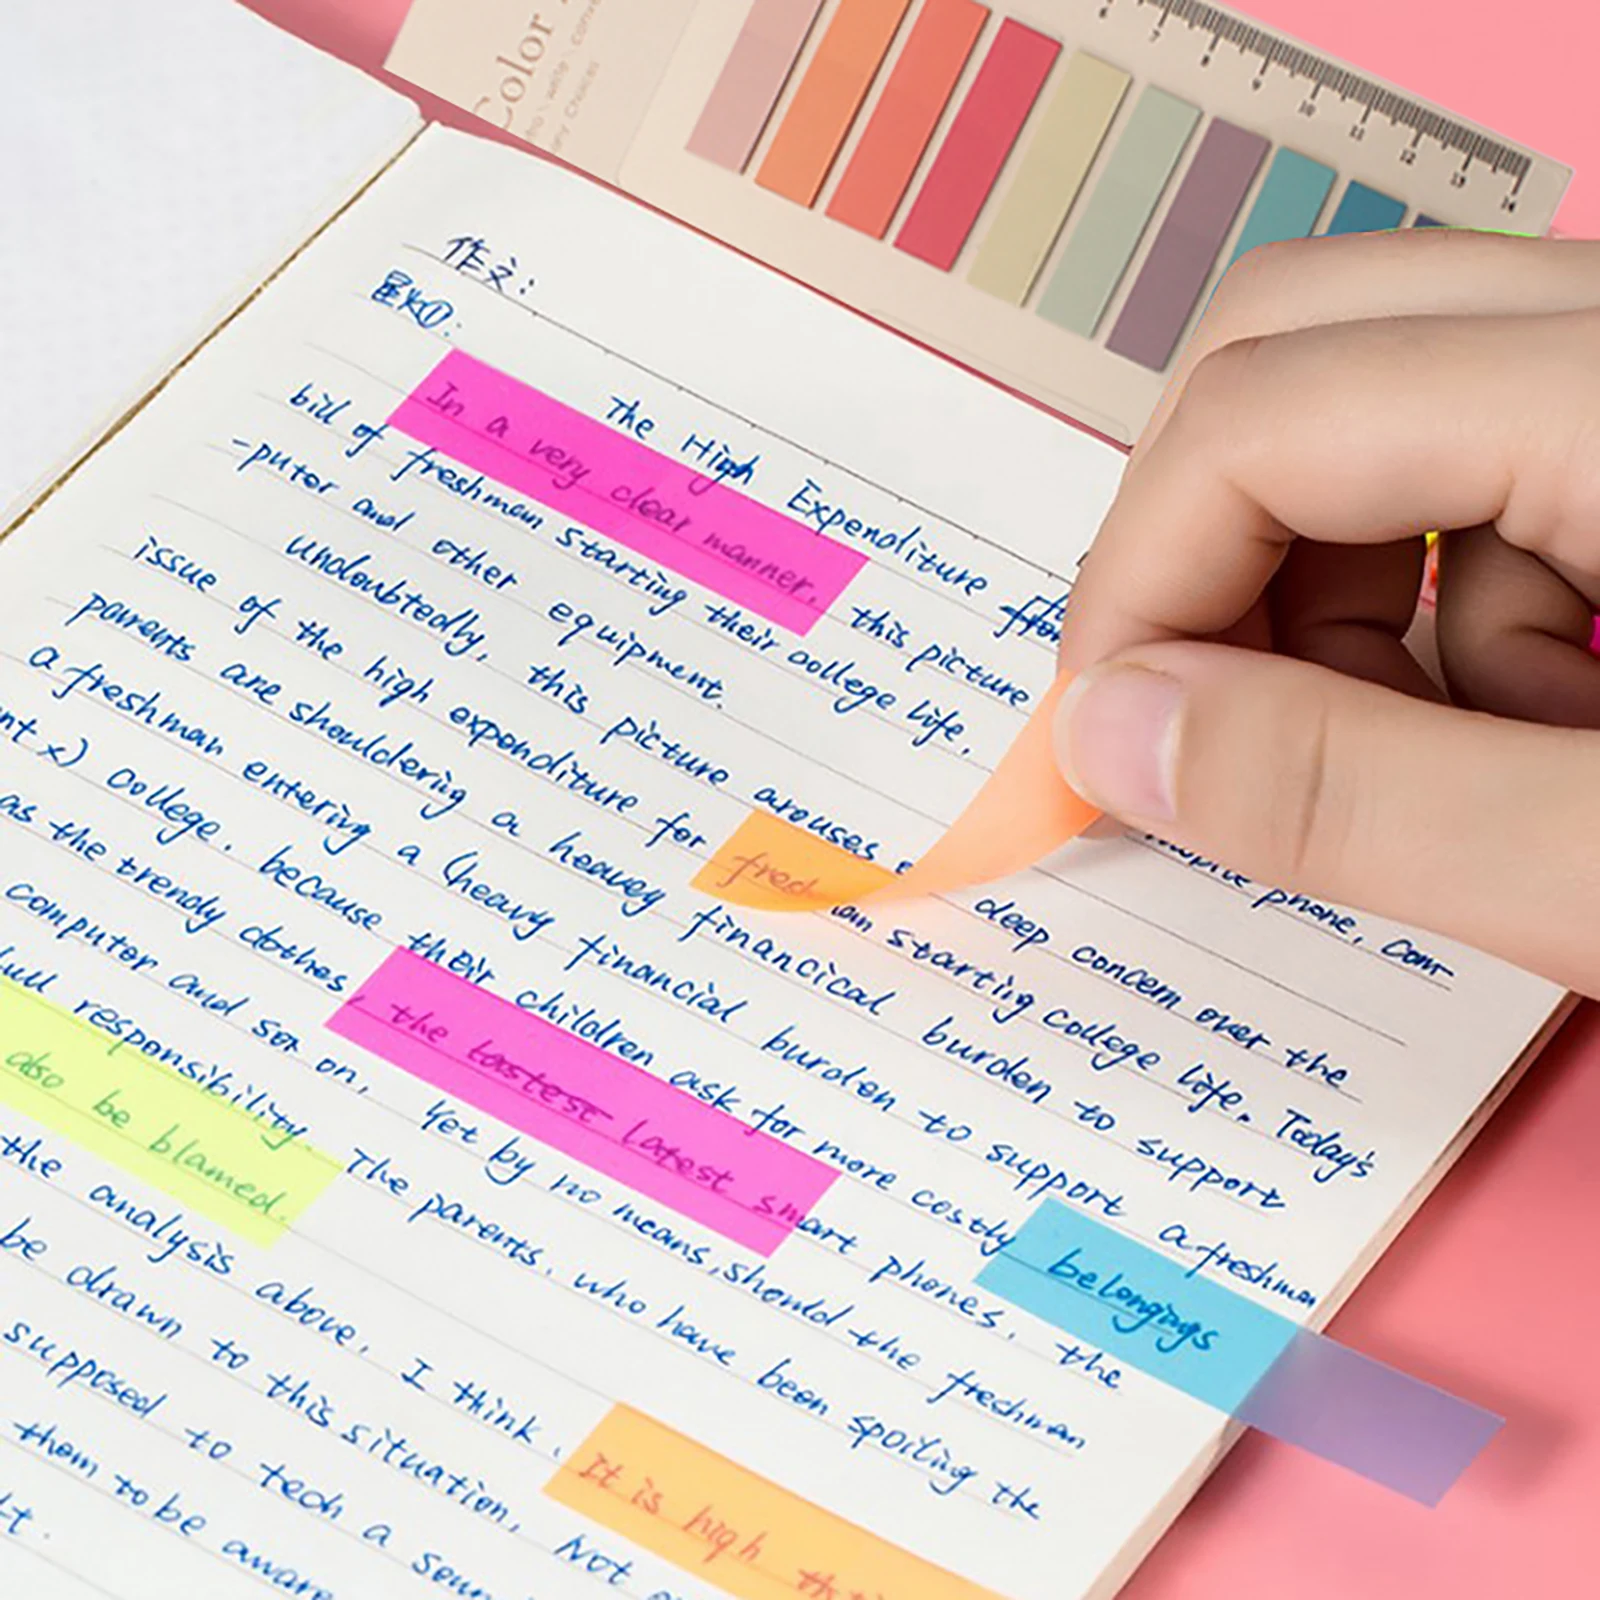 Color
6 7 8 9 10 11 12 13 14
作文:
星火①:
The High Expenditure
In a very clear manner, this picture
bill of freshman starting their college life.
-puter and other equipment.
mobile phone, com-
Undoubtedly, this picture arouses deep concern over the
issue of the high expenditure for starting college life. Today's
parents are shouldering a heavy financical burden to support
a freshman entering a (heavy financial burden to support a freshman
x) college, because their children ask for more costly belongings
as the trendy clothes, the tastest latest smart phones, the
computer and so on. Yet by no means, should the freshman
full responsibility. The parents, who have been spoiling the
also be blamed.
the analysis above, I think, It is high
be drawn to this situation, Not
supposed to tech a
them to be aware